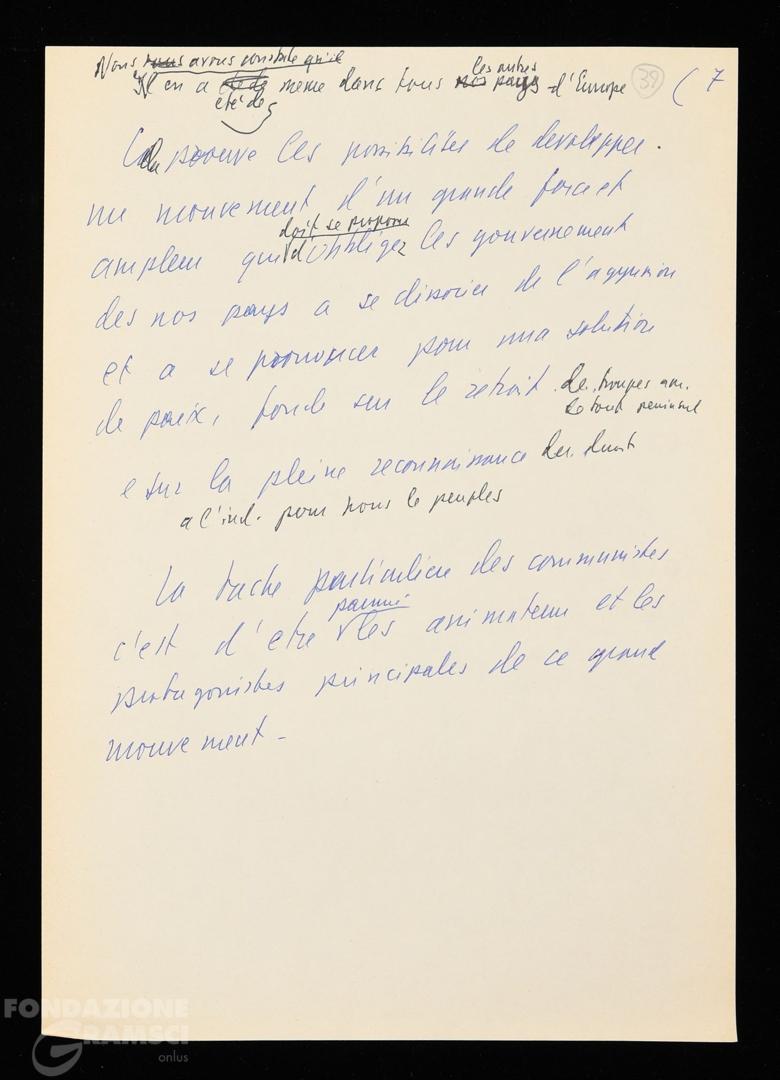 Nous avons constaté qu'il
Il en a été de même dans tous les autres pays d'Europe 39 (7
Cela prouve les possibilites de developper
un mouvement d'un grande force et
ampleur qui doit se propose
d'obbliger les gouvernement
des nos pays a se dissocier de l'aggression
et a se prononcer pour una solution
de paix, fonde sur le retrait des troupes am.
de tout peninsul
e sur la pleine reconnaissance des droits
a l'ind. pour tous le peuples
La tache particuliere des communistes
c'est d'etre parmi les animateur et les
protagonistes principales de ce grand
mouvement -
FONDAZIONE
GRAMSCI
onlus